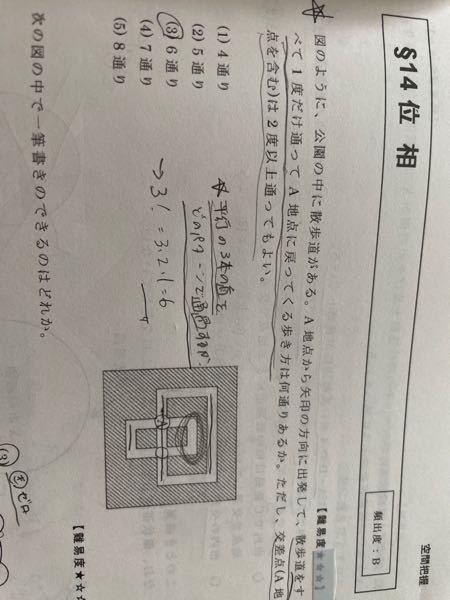 空間把握
頻出度：B
§14 位 相
【難易度★★★】
図のように、公園の中に散歩道がある。A 地点から矢印の方向に出発して、散歩道をす
べて 1 度だけ通って A 地点に戻ってくる歩き方は何通りあるか。ただし、交差点(A 地
点を含む)は 2 度以上通ってもよい。
(1) 4 通り
(2) 5 通り
(3) 6 通り
(4) 7 通り
(5) 8 通り
☆平行の3本の道を、
どのパターンで通過するか
→ 3! = 3.2.1 = 6
A
【難易度★☆☆】
次の図の中で一筆書きのできるのはどれか。
(3)
ゼロ